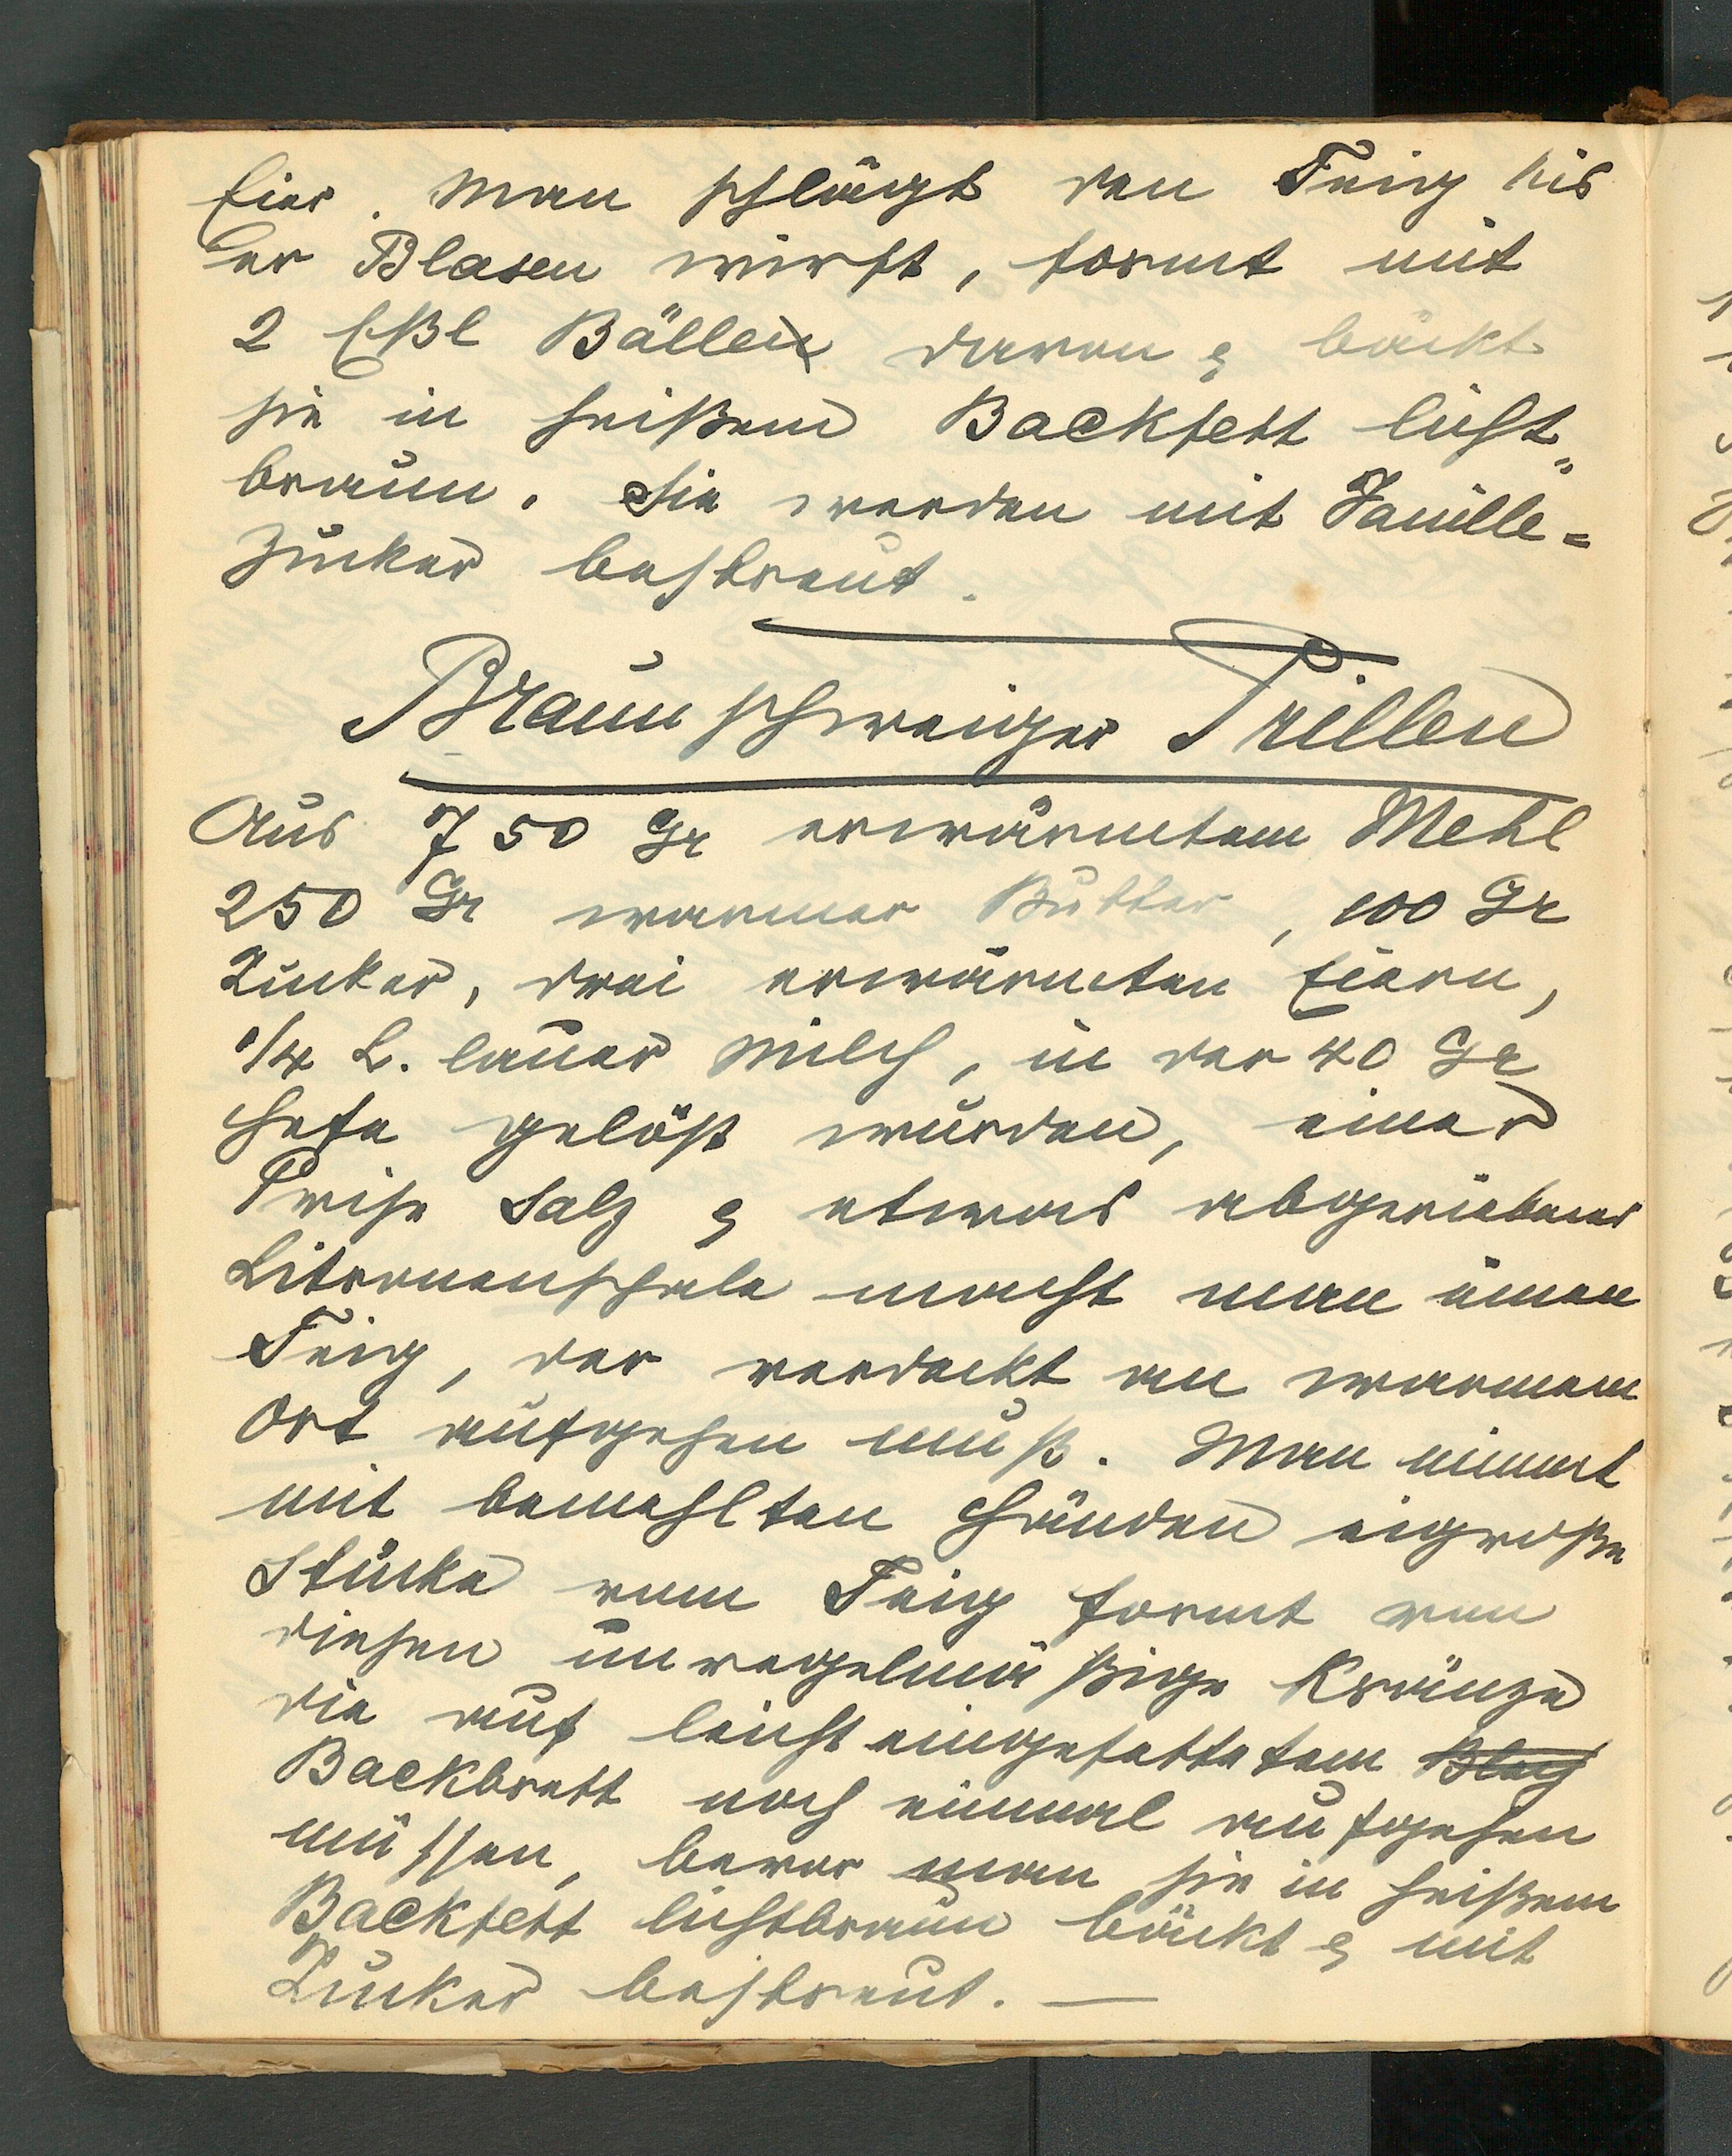 Eier. Man schlägt den Teig bis
er Blasen wirft, formt mit
2 Eßl Bällen davon & bäckt
sie in heißem Backfett licht„
braun. Sie werden mit Vanille=
Zucker bestreut.
Braunschweiger Prillen
Aus 750 Gr erwärmtem Mehl
250 Gr warmer Butter, 100 Gr
Zucker, drei erwärmten Eiern,
1/4 L. lauer Milch, in der 40 Gr
Hefe gelöst wurden, einer
Prise Salz & etwas abgeriebener
Zitronenschale macht man einen
Teig, der verdeckt an warmem
Ort aufgehen muß. Man nimmt
mit bemehlten Händen eigroße
Stücke vom Teig formt von
diesen unregelmäßige Kränze
die auf leicht eingefettetem Blech
Backbrett noch einmal aufgehen
müssen, bevor man sie in heißem
Backfett lichtbraun bäckt & mit
Zucker bestreut. —